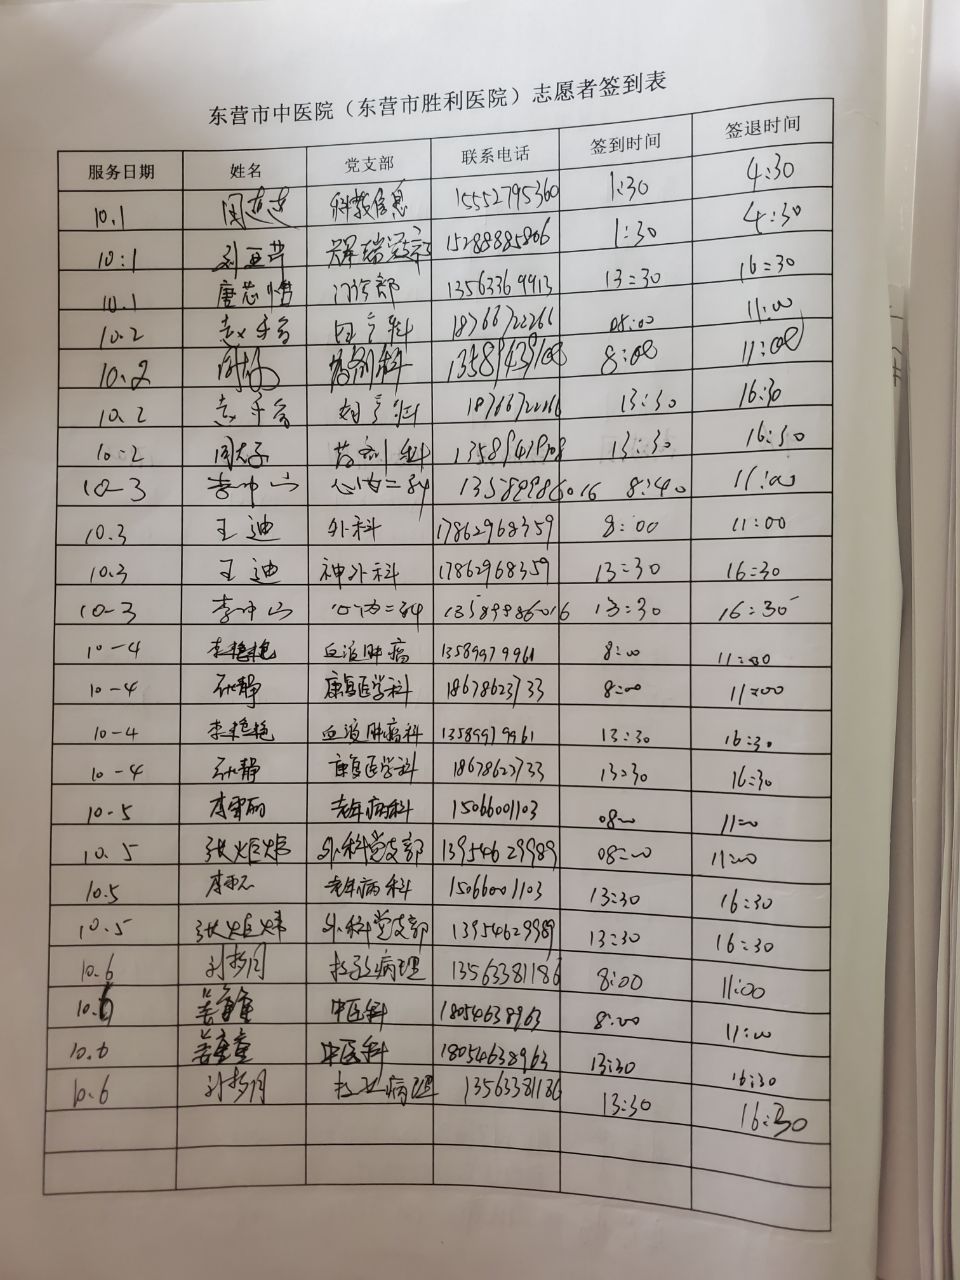 东营市中医院（东营市胜利医院）志愿者签到表
服务日期 姓名 党支部 联系电话 签到时间 签退时间
10.1 科教信息 15552795360 1:30 4:30
10:1 15288885806 1:30 4:30
10.1 唐芯惜 门诊部 13563369913 13:30 16:30
10.2 妇产科 18766722266 08:00 11:00
10.2 药剂科 13589439108 8:00 11:00
10.2 妇产科 18766722266 13:30 16:30
10:2 药剂科 13:30 16:30
10-3 李中山 心内二科 13589986016 8:40 11:00
10.3 王迪 外科 17862968359 8:00 11:00
10.3 王迪 神外科 17862968359 13:30 16:30
10-3 李中山 心内二科 13589986016 13:30 16:30
10-4 李艳艳 血液肿瘤 13589979961 8:00 11:00
10-4 张静 康复医学科 18678623733 8:00 11:00
10-4 李艳艳 血液肿瘤科 13589979961 13:30 16:30
10-4 张静 康复医学科 18678623733 13:30 16:30
10-5 李雪丽 老年病科 15066001103 08:00 11:00
10.5 张炬炜 外科党支部 13954629989 08:00 11:00
10.5 老年病科 15066001103 13:30 16:30
10.5 张炬炜 外科党支部 13954629989 13:30 16:30
10.6 病理 13563381186 8:00 11:00
10.6 中医科 18054638963 8:00 11:00
10.6 中医科 18054638963 13:30 16:30
10.6 病理 13563381186 13:30 16:30